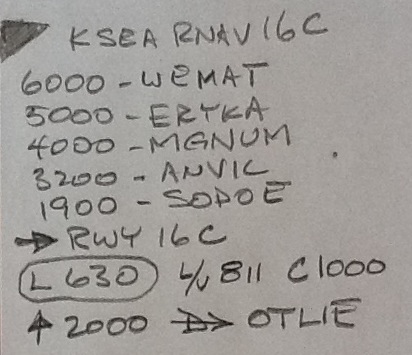 KSEA RNAV 16C
6000 - WEMAT
5000 - ERYKA
4000 - MGNUM
3200 - ANVIL
1900 - SODOE
→ RWY 16C
L 630 L/V 811 C1000
↑ 2000 → OTLIE